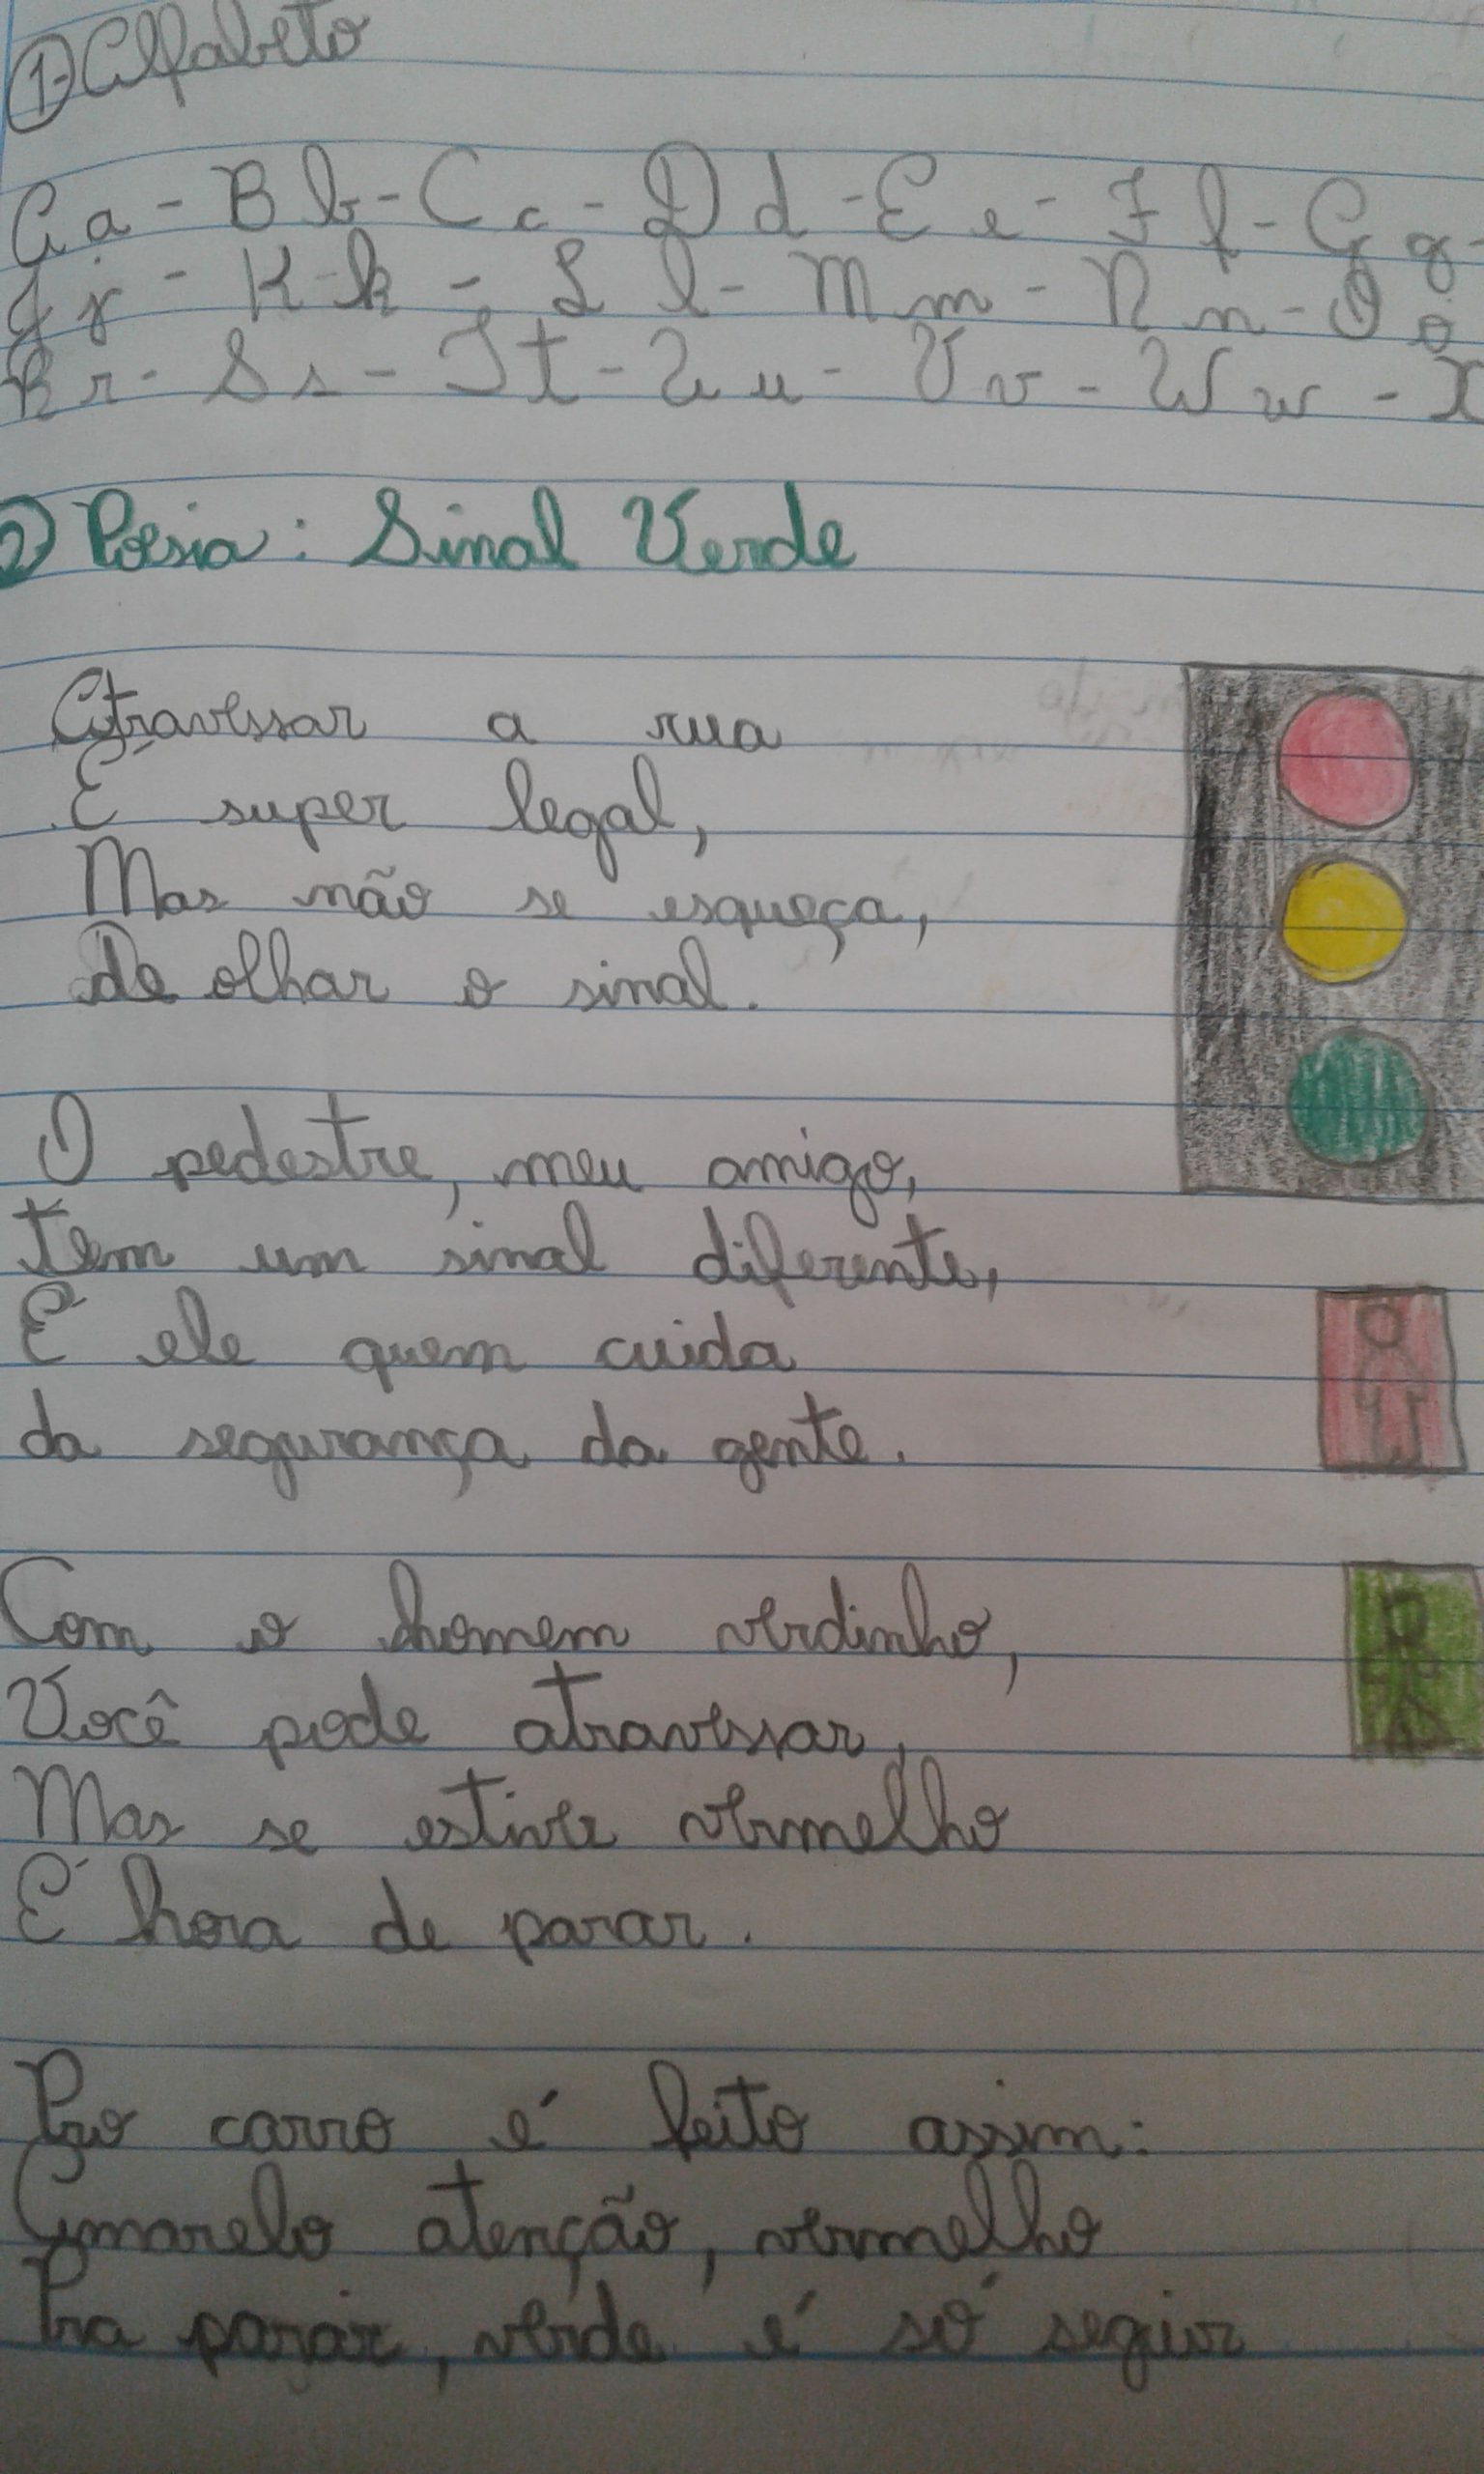 1- Alfabeto
Aa - Bb - Cc - Dd - Ee - Ff - Gg -
Jj - Kk - Ll - Mm - Nn - Oo
Rr - Ss - Tt - Uu - Vv - Ww - X
2) Poesia: Sinal Verde
Atravessar a rua
É super legal,
Mas não se esqueça,
De olhar o sinal.
O pedestre, meu amigo,
tem um sinal diferente,
É ele quem cuida
da segurança da gente.
Com o homem verdinho,
Você pode atravessar,
Mas se estiver vermelho
É hora de parar.
Pro carro é feito assim:
Amarelo atenção, vermelho
Pra parar, verde é só seguir